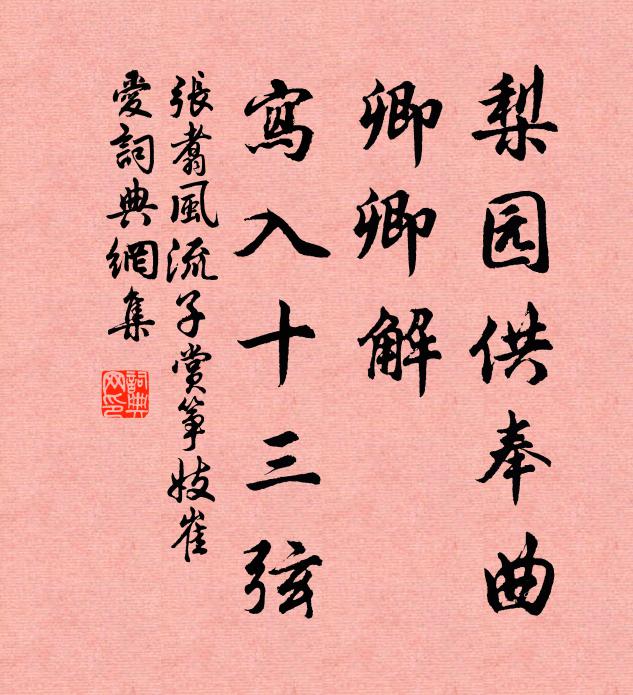 梨园供奉曲
卿卿解
寫入十三弦
張翥風流子賞箏妓崔
愛詞典網集
詞典
网印